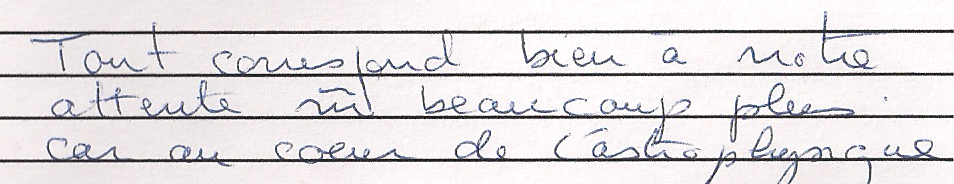 Tout correspond bien à notre
attente beaucoup plus.
car au coeur de l'astrophysique